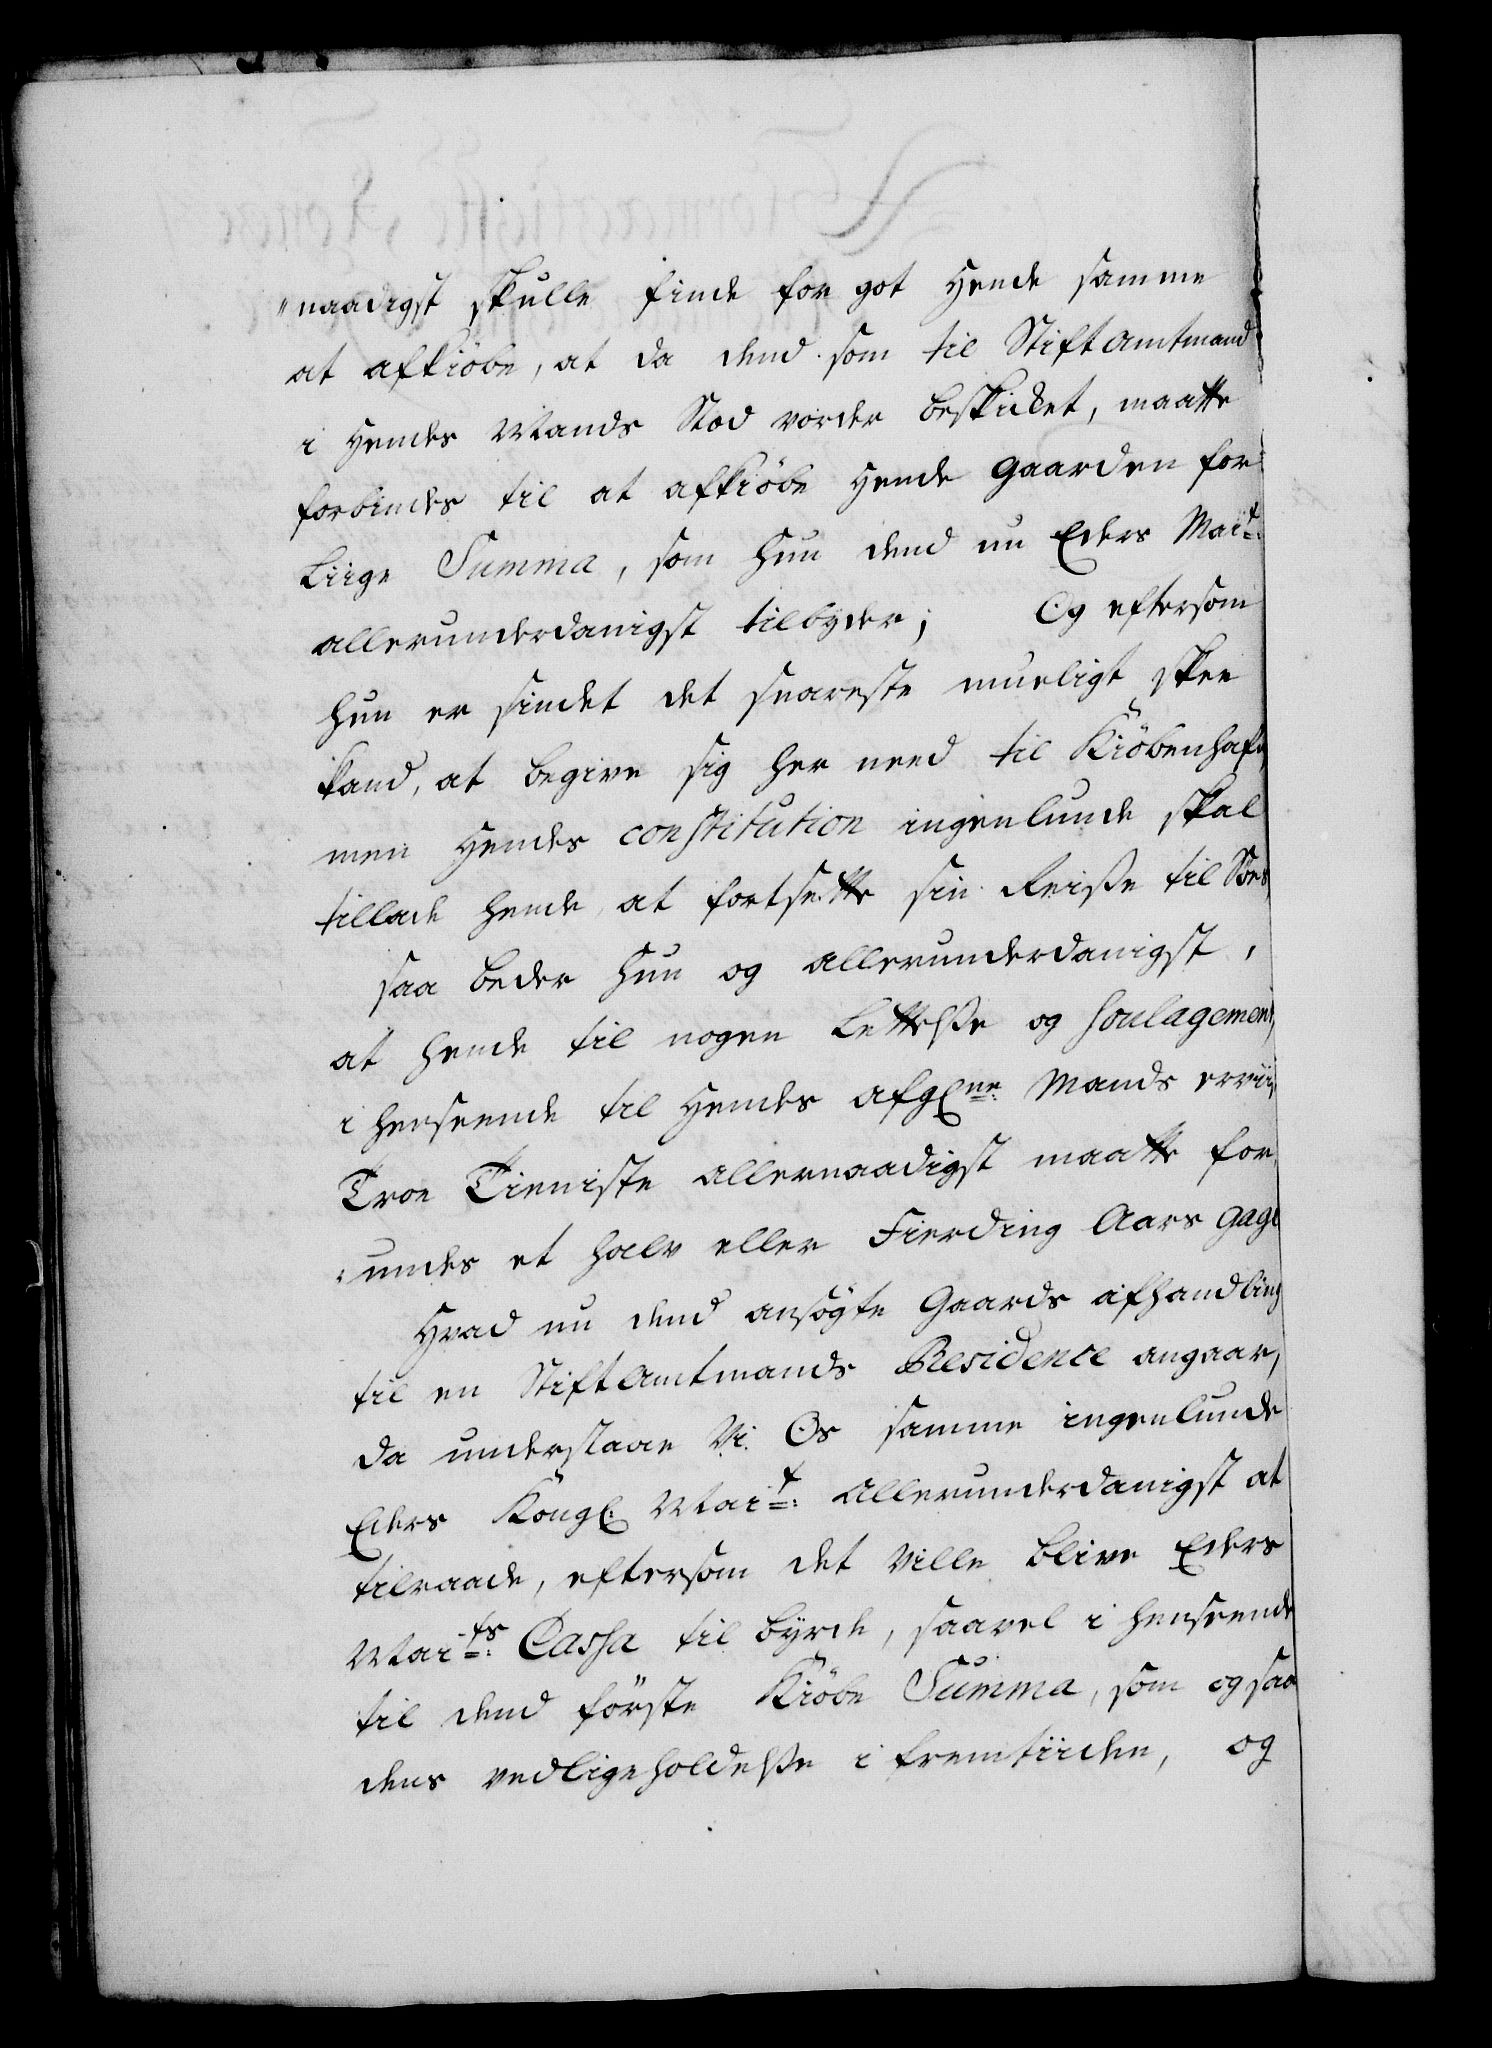 "naadigst skulle finde for got Hende samme
at afkiöbe, at da dend som til Stiftamtmand
i Hendes Mands Stod vorder beskicket, maatte
forbindes til at afkiöbe Hende Gaarden for
liige Summa, som hun dend nu Eders Mait:
allerunderdanigst tilbyder; Og eftersom
hun er sindet det snareste mueligt skee
kand, at begive sig her need til Kiöbenhafn,
men Hendes constitution ingenlunde skal
tillade hende, at fortsætte sin Reisse til Söes,
saa beder hun og allerunderdanigst,
at hende til nogen Lettelsse og soulagement,
i henseende til Hendes afgl:ne Mands erviiste
Troe Tieniste allernaadigst maatte for„
„undes et halv eller Fierding Aars gage
Hvad nu dend ansögte Gaards afhandling
til en Stiftamtmands Residence angaar,
da understaae Vi Os samme ingenlunde
Eders Kongl: Mait: Allerunderdanigst at
tilraade, eftersom det ville blive Eders
Maits: Cassa til byrde, saavel i henseende
til dend förste Kiöbe Summa, som og saa
dens vedligeholdelsse i fremtiiden, og